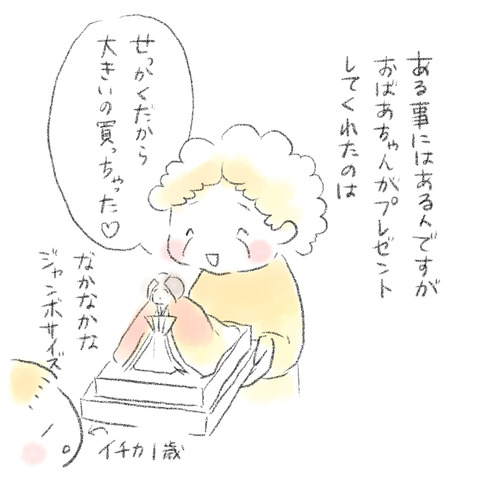 ある事にはあるんですが
おばあちゃんがプレゼント
してくれたのは
せっかくだから
大きいの買っちゃった♡
なかなかな
ジャンボサイズ
イチカ1歳